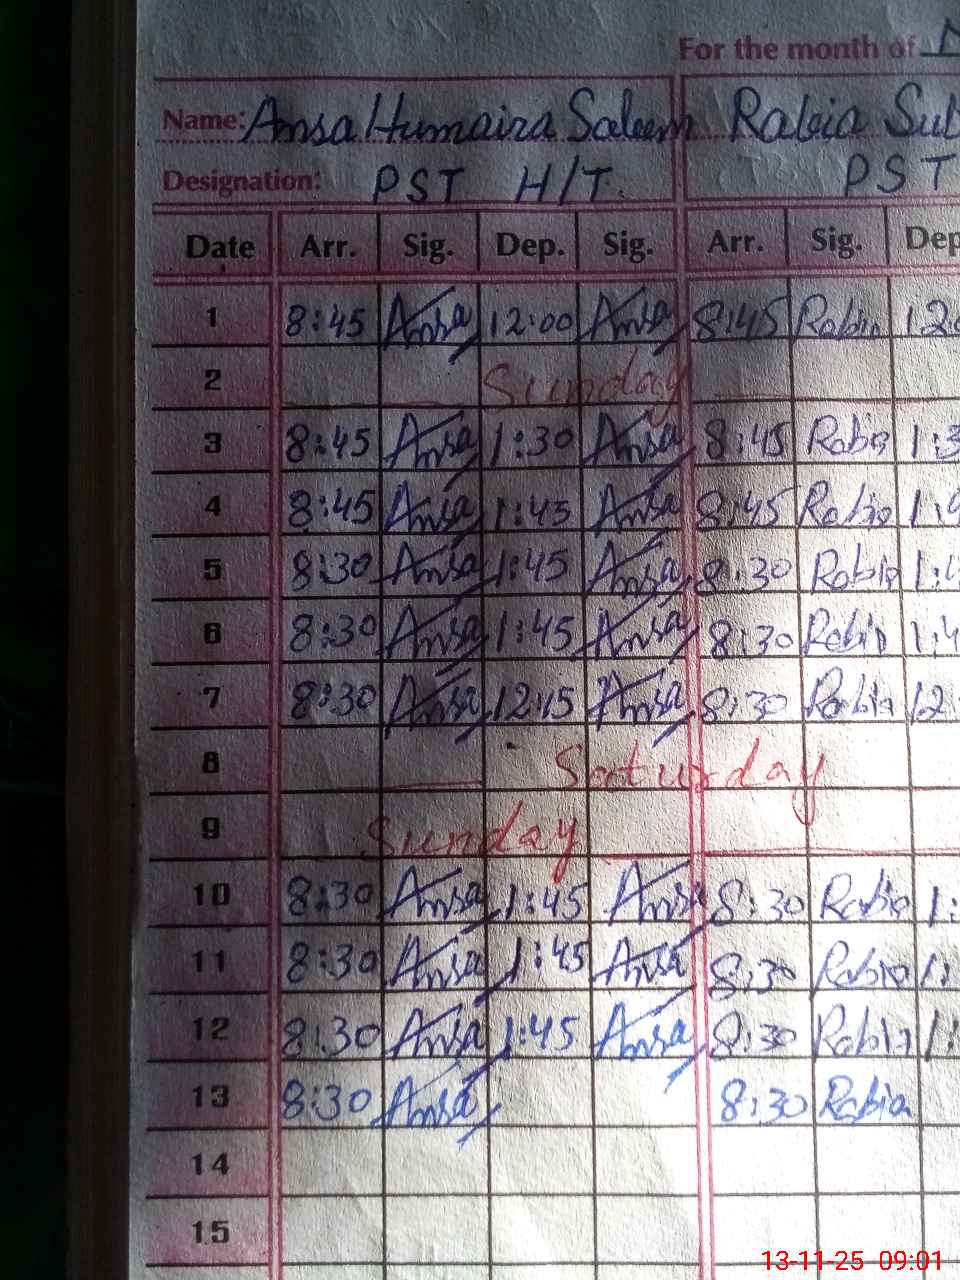 For the month of
Name: Amsa Humaira Saleem Rabia
Designation: PST H/T. PST
Date Arr. Sig. Dep. Sig. Arr. Sig. Dep
1 8:45 Amsa 12:00 Amsa 8:45 Rabia
2 Sunday
3 8:45 Amsa 1:30 Amsa 8:45 Rabia
4 8:45 Amsa 1:45 Amsa 8:45 Rabia
5 8:30 Amsa 1:45 Amsa 8:30 Rabia
6 8:30 Amsa 1:45 Amsa 8:30 Rabia
7 8:30 Amsa 12:15 Amsa 8:30 Rabia 12
8 Saturday
9 Sunday
10 8:30 Amsa 1:45 Amsa 8:30 Rabia 1:
11 8:30 Amsa 1:45 Amsa 8:30 Rabia 1:
12 8:30 Amsa 1:45 Amsa 8:30 Rabia 1:
13 8:30 Amsa 8:30 Rabia
14
15
13-11-25 09:01